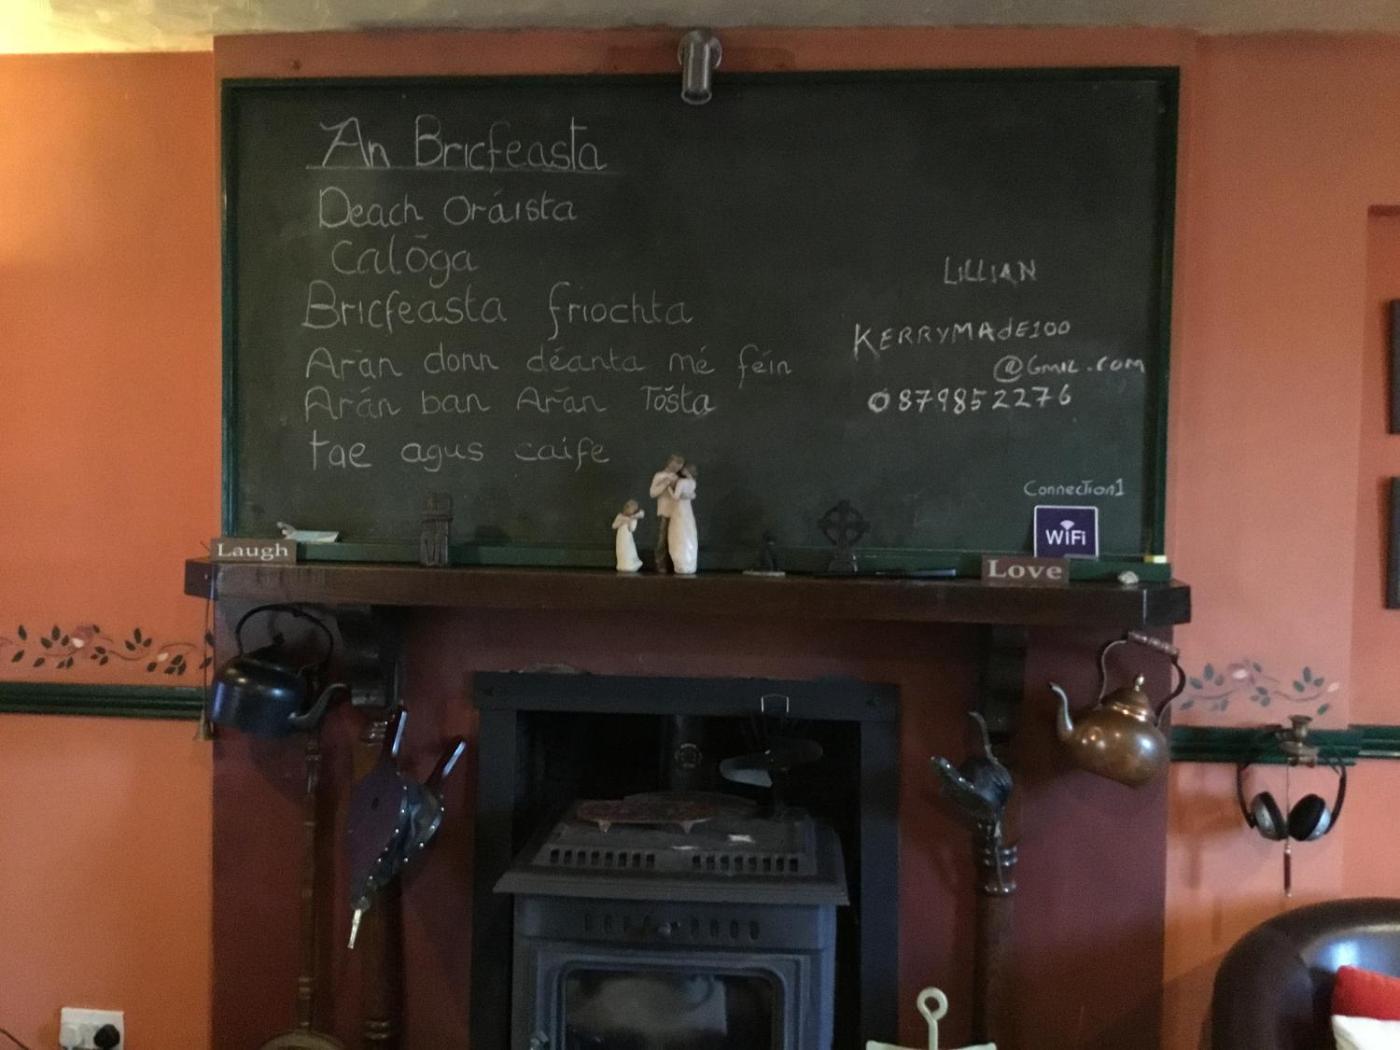 An Bricfeasta
Deach Oráista
Calōga
Bricfeasta friochta
Arán donn déanta mé féin
Arán ban Arán Tósta
tae agus caife
LILLIAN
KERRYMAdE100
@Gmil.com
0879852276
Connection1
WiFi
Laugh
Love